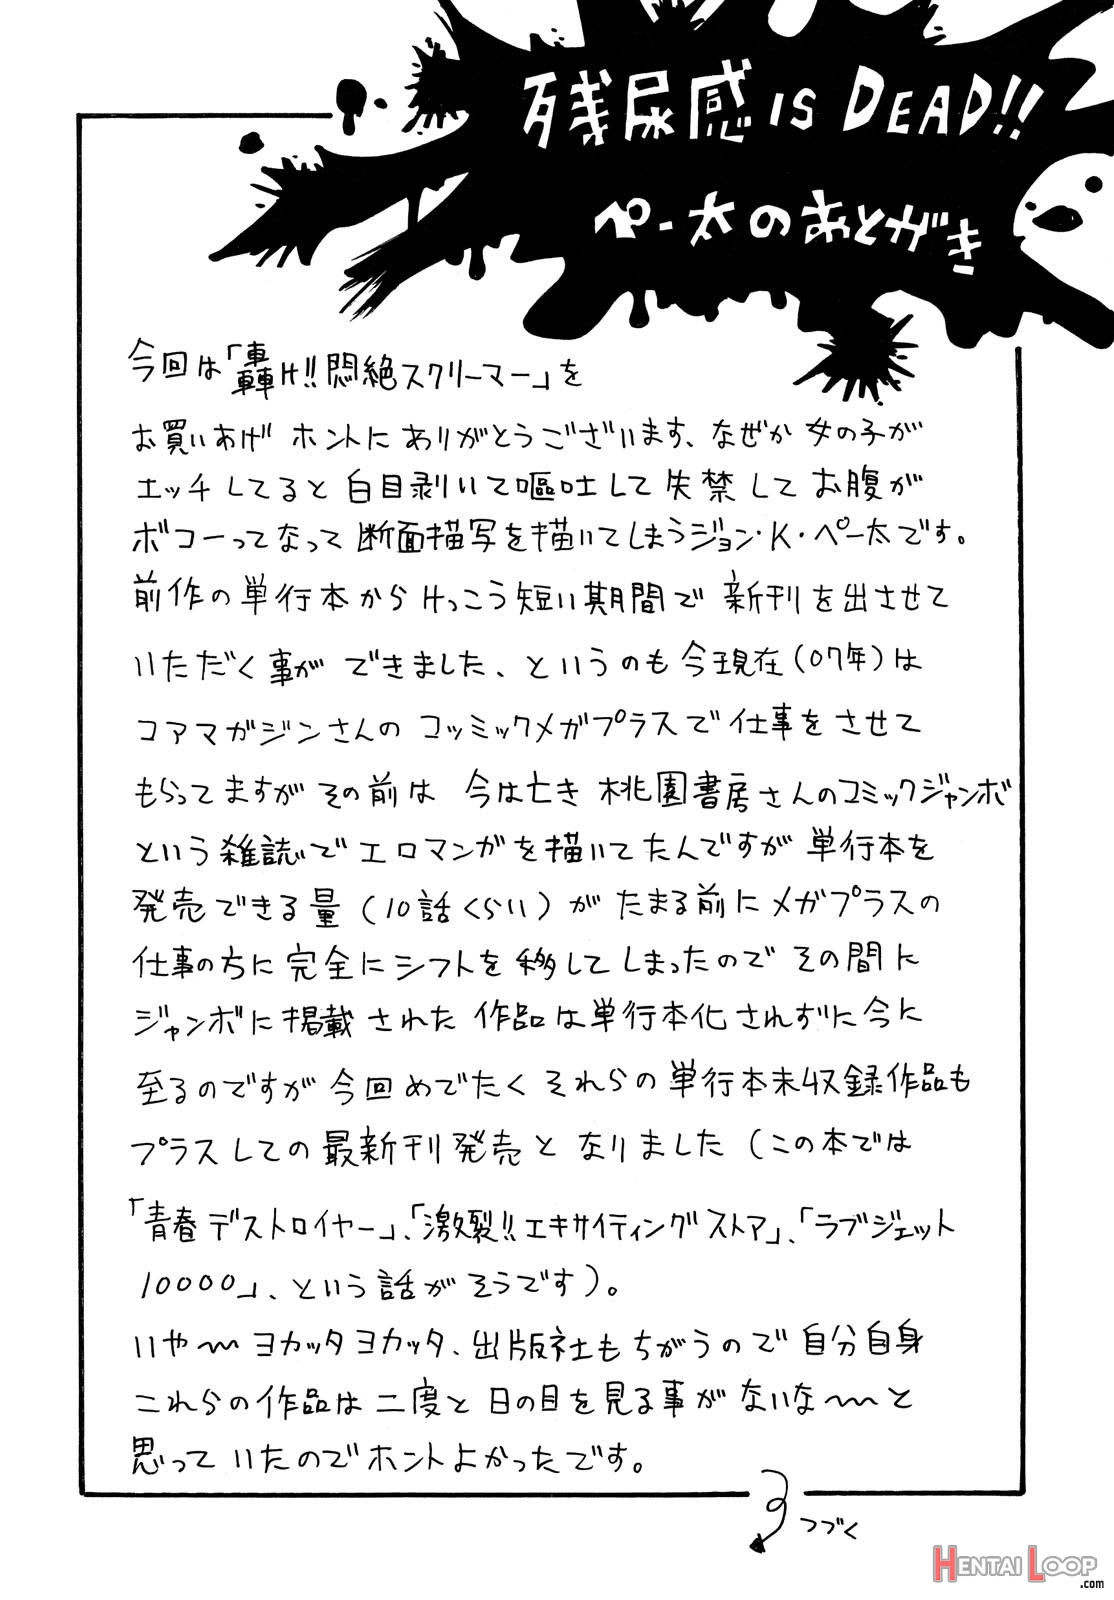 残尿感 IS DEAD!!
ペー太のあとがき
今回は「轟け!!悶絶スクリーマー」を
お買いあげ ホントにありがとうございます、なぜか女の子が
エッチしてると白目剥いて嘔吐して失禁してお腹が
ボコーってなって断面描写を描いてしまうジョン・K・ペー太です。
前作の単行本からけっこう短い期間で新刊を出させて
いただく事ができました、というのも今現在(07年)は
コアマガジンさんのコッミックメガプラスで仕事をさせて
もらってますがその前は 今は亡き 桃園書房さんのコミックジャンボ
という雑誌でエロマンガを描いてたんですが単行本を
発売できる量(10話くらい)がたまる前にメガプラスの
仕事の方に完全にシフトを移してしまったのでその間に
ジャンボに掲載された作品は単行本化されずに今に
至るのですが今回めでたくそれらの単行本未収録作品も
プラスしての最新刊発売となりました(この本では
「青春デストロイヤー」、「激裂!!エキサイティングストア」、「ラブジェット
10000」、という話がそうです)。
いや〜ヨカッタヨカッタ、出版社もちがうので自分自身
これらの作品は二度と日の目を見る事がないな〜と
思っていたのでホントよかったです。
つづく
HENTAI LOOP
.com